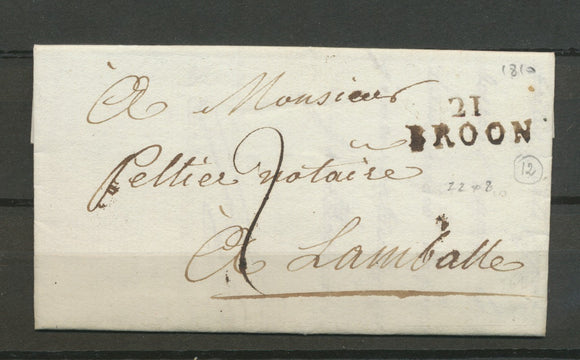 1810
21
BROON
A Monsieur
Peltier notaire
2
12
22 x 8
A Lamballe